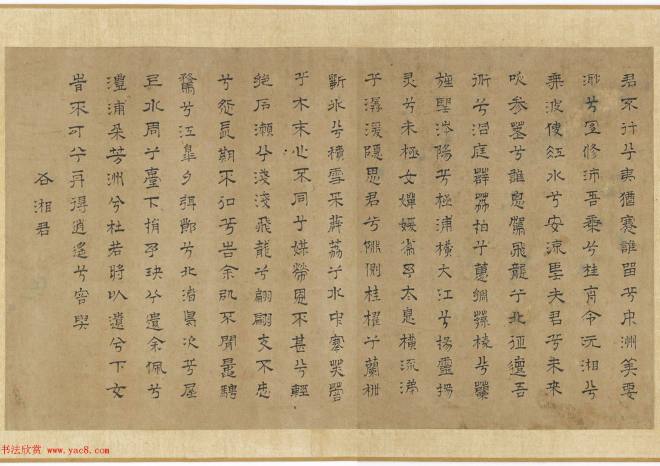 君不行兮夷猶蹇誰留兮中洲美要
眇兮宜修沛吾乘兮桂舟令沅湘兮
無波使江水兮安流望夫君兮未來
吹參差兮誰思駕飛龍兮北征邅吾
道兮洞庭薜荔柏兮蕙綢蓀橈兮蘭
旌望涔陽兮極浦橫大江兮揚靈揚
灵兮未極女嬋媛為予太息橫流涕
兮潺湲隱思君兮陫側桂櫂兮蘭枻
斲冰兮積雪采薜荔兮水中搴芙蓉
兮木末心不同兮媒勞恩不甚兮輕
絕石瀨兮淺淺飛龍兮翩翩交不忠
兮怨長期不信兮告余以不閒鼂騁
騖兮江皋夕弭節兮北渚鳥次兮屋
上水周兮堂下捐予玦兮遺余佩兮
澧浦采芳洲兮杜若將以遺兮下女
旹不可兮再得逍遙兮容與
右湘君
书法欣赏 www.yac8.com